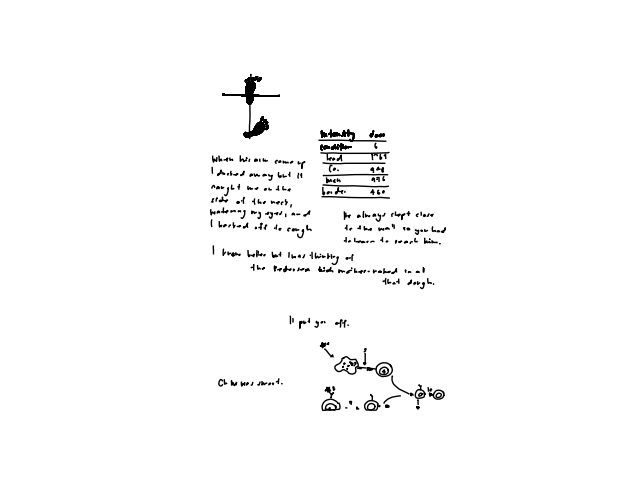 Intensity dose
condition 6
lead
Co.
back
border 460
When his arm came up
I ducked away but it
caught me on the
side of the neck,
watering my eyes, and
I backed off to cough
He always slept close
to the wall so you had
to lean to reach him.
I know better but I was thinking of
the Pedersen kids mother-naked in all
that dough.
It put you off.
Oh he was smart.